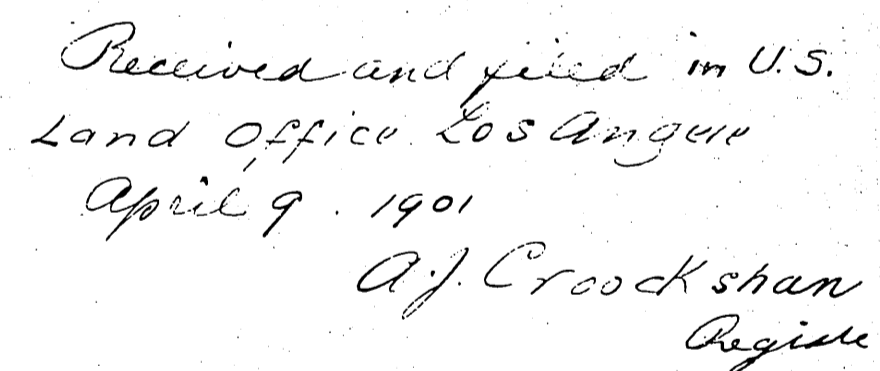 Received and filed in U.S.
Land Office Los Angele
April 9. 1901
A.J. Croockshan
Registe